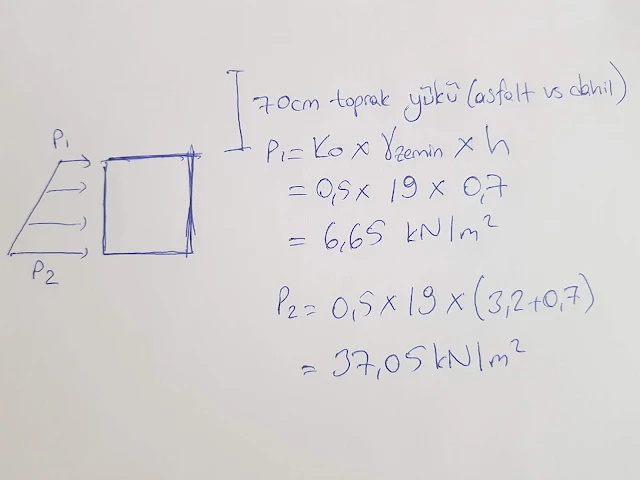 70cm toprak yükü (asfalt vs dahil)
P1 = Ko x γzemin x h
= 0,5 x 19 x 0,7
= 6,65 kN/m²
P1
P2
P2 = 0,5 x 19 x (3,2+0,7)
= 37,05 kN/m²